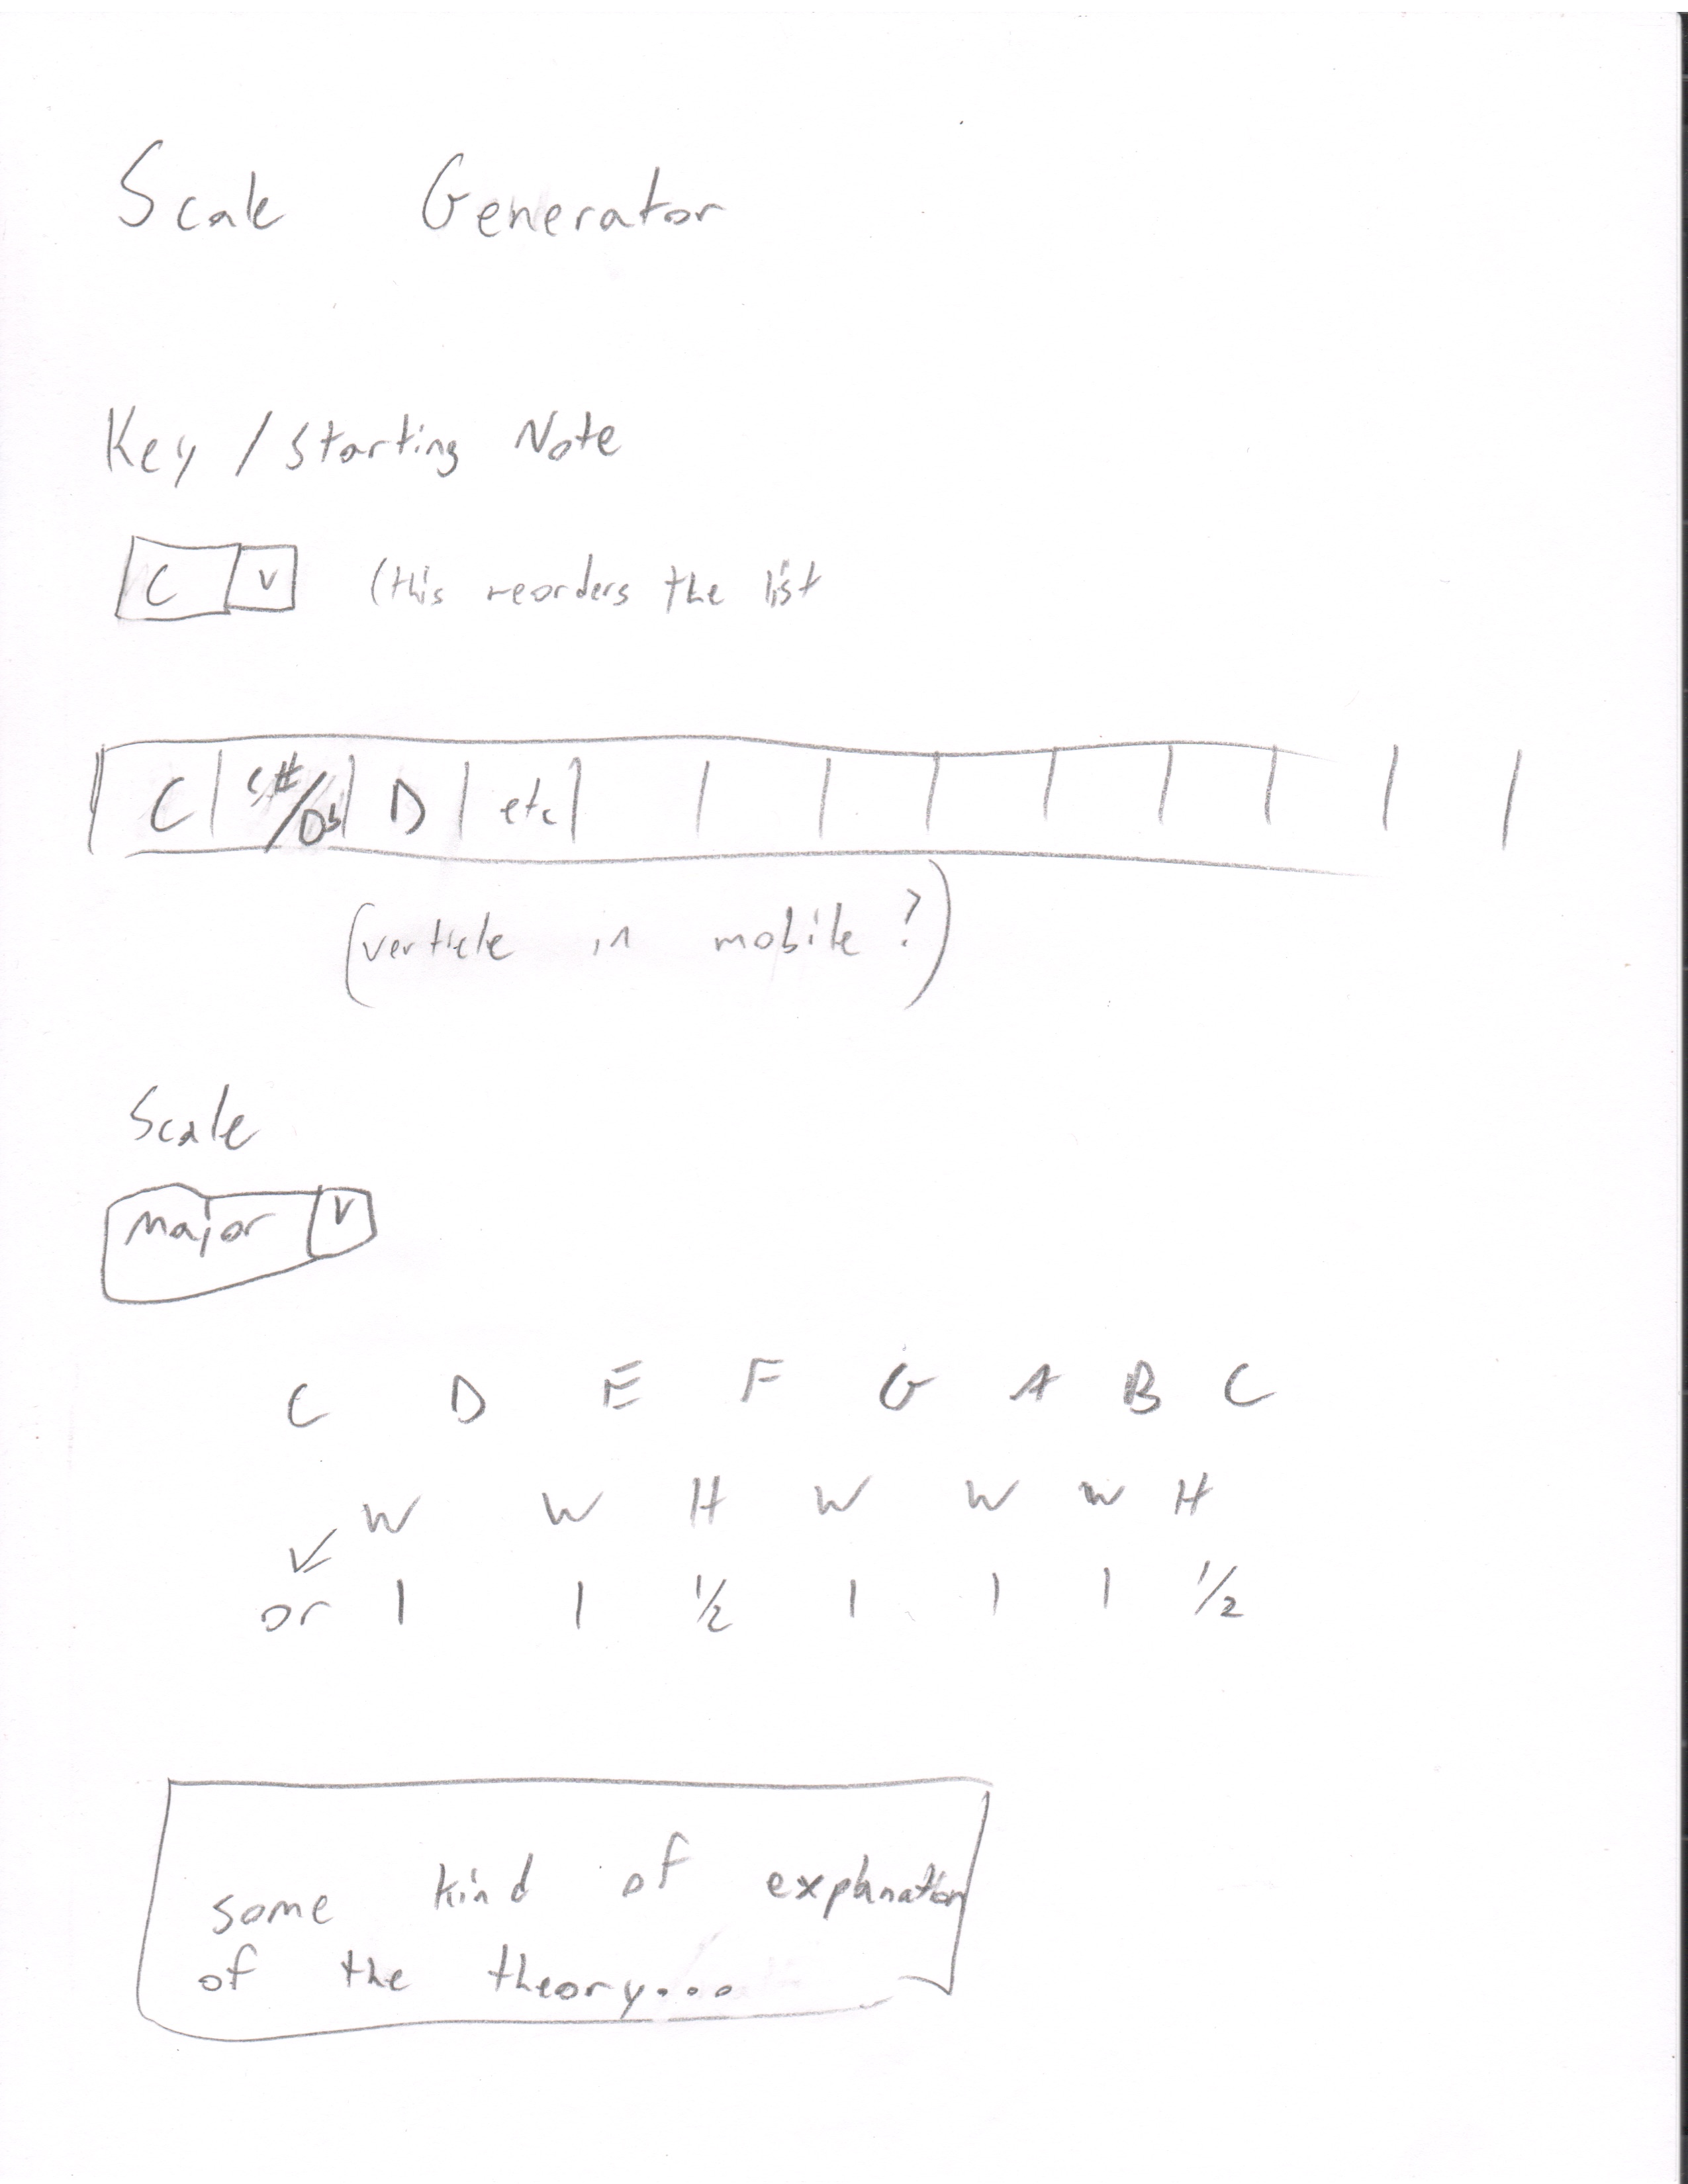 Scale Generator
Key / Starting Note
C V (this reorders the list
C C#/Db D etc
(verticle in mobile?)
Scale
Major V
C D E F G A B C
W W H W W W H
or 1 1 1/2 1 1 1 1/2
some kind of explanation
of the theory...